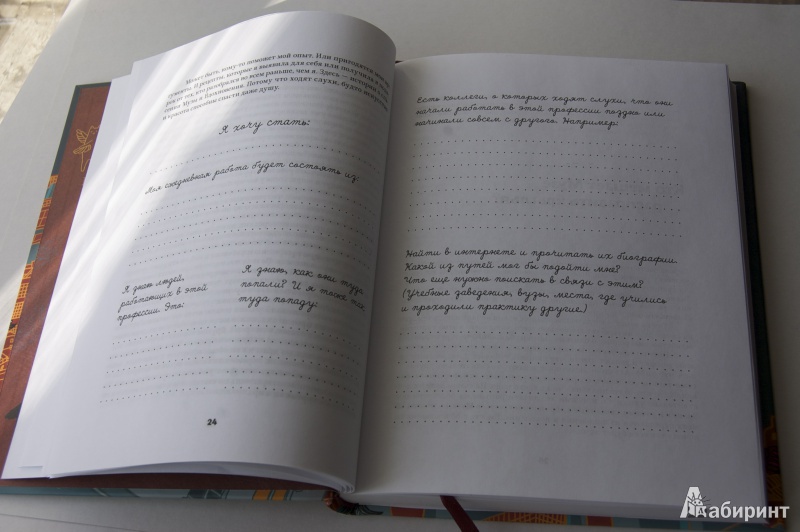 Может быть, кому-то поможет мой опыт. Или пригодятся мои
рецепты, которые я выявила для себя или получила
Музы и Вдохновения. Потому что ходят слухи, будто
и красота способны спасти даже душу.
Я хочу стать:
Моя ежедневная работа будет состоять из:
Я знаю людей,
работающих в этой
профессии. Это:
Я знаю, как они туда
попали? И я тоже так
туда попаду:
24
Есть коллеги, о которых ходят слухи, что они
начали работать в этой профессии поздно или
начинали совсем с другого. Например:
Найти в интернете и прочитать их биографии.
Какой из путей мог бы подойти мне?
Что еще нужно поискать в связи с этим?
(Учебные заведения, вузы, места, где учились
и проходили практику другие.)
Лабиринт